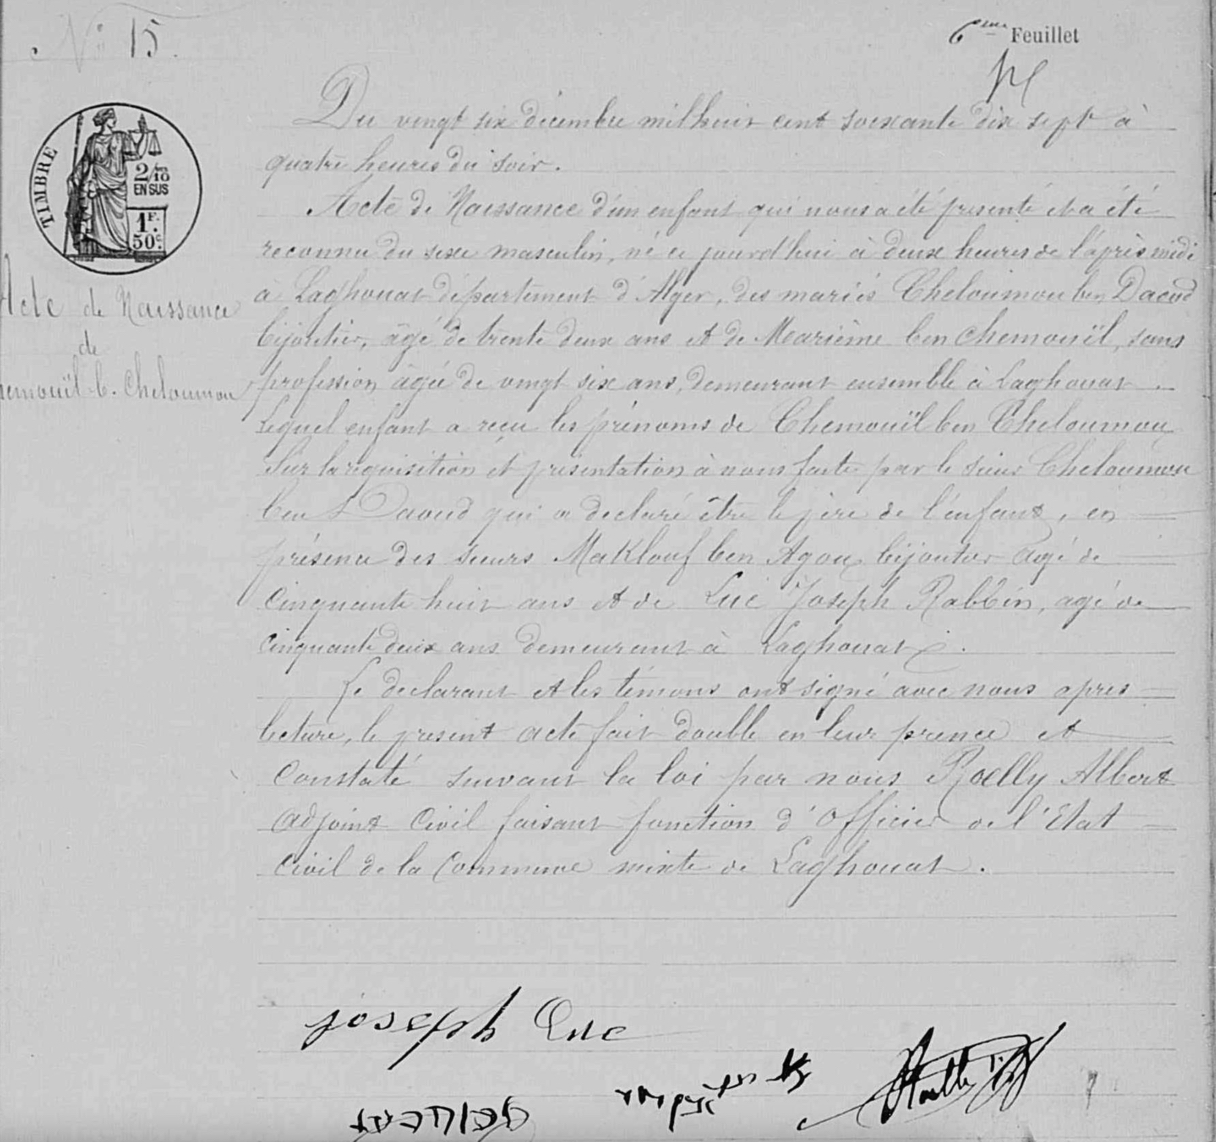 N° 15.
6eme Feuillet
TIMBRE
2/10
EN SUS
1F.
50c
Acte de Naissance
de
hemouïl b. Cheloumou
Du vingt six décembre mil huit cent soixante dix sept à
quatre heures du soir.
Acte de Naissance d'un enfant qui nous a été présenté et a été
reconnu du sexe masculin, né ce jourd'hui à deux heures de l'après midi
à Laghouat département d'Alger, des mariés Cheloumou ben Daoud
bijoutier, âgé de trente deux ans et de Marième ben Chemouïl, sans
profession, âgée de vingt six ans, demeurant ensemble à Laghouat.
Lequel enfant a reçu les prénoms de Chemouïl ben Cheloumou
Sur la réquisition et présentation à nous faite par le sieur Cheloumou
ben Daoud qui a déclaré être le père de l'enfant, en
présence des sieurs Maklouf ben Agou, bijoutier âgé de
cinquante huit ans et de Luc Joseph Rabbin, agé de
cinquante deux ans demeurant à Laghouat.
Le declarant et les témoins ont signé avec nous apres
lecture, le present acte fait double en leur prence et
Constaté suivant la loi par nous Roelly Albert
adjoint Civil faisant fonction d'Officier de l'Etat
Civil de la Commune mixte de Laghouat.
joseph Luc